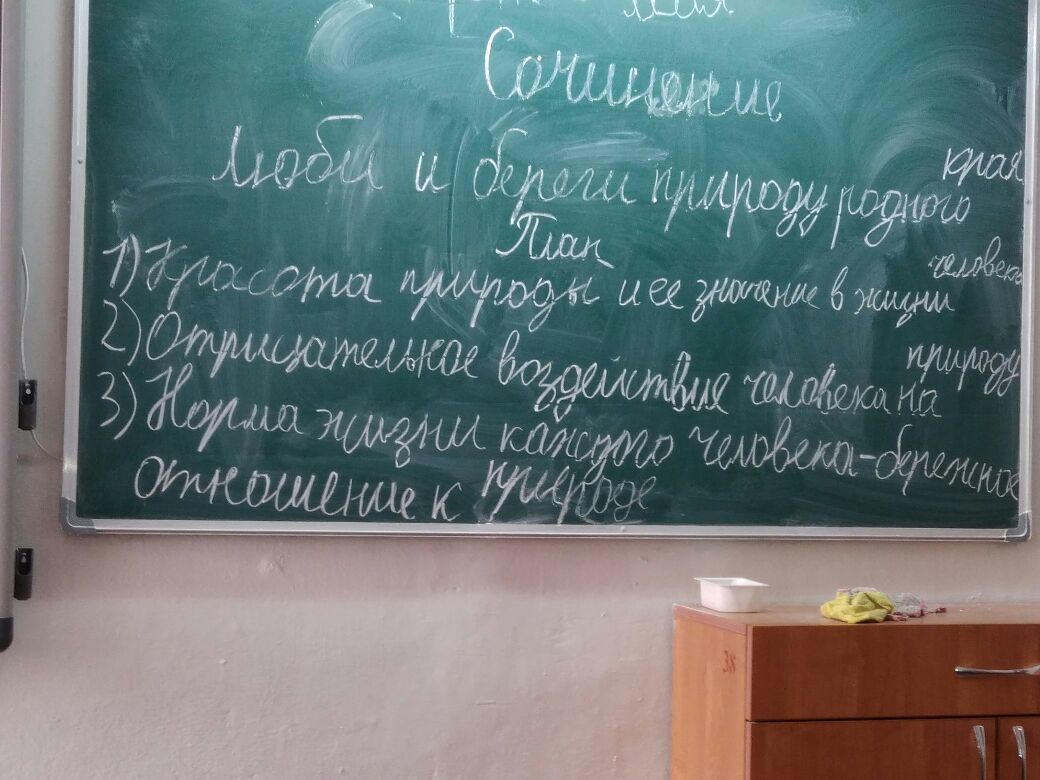 Сочинение
Люби и береги природу родного края
План
1) Красота природы и ее значение в жизни человека
2) Отрицательное воздействие человека на природу
3) Норма жизни каждого человека-бережное
отношение к природе
38